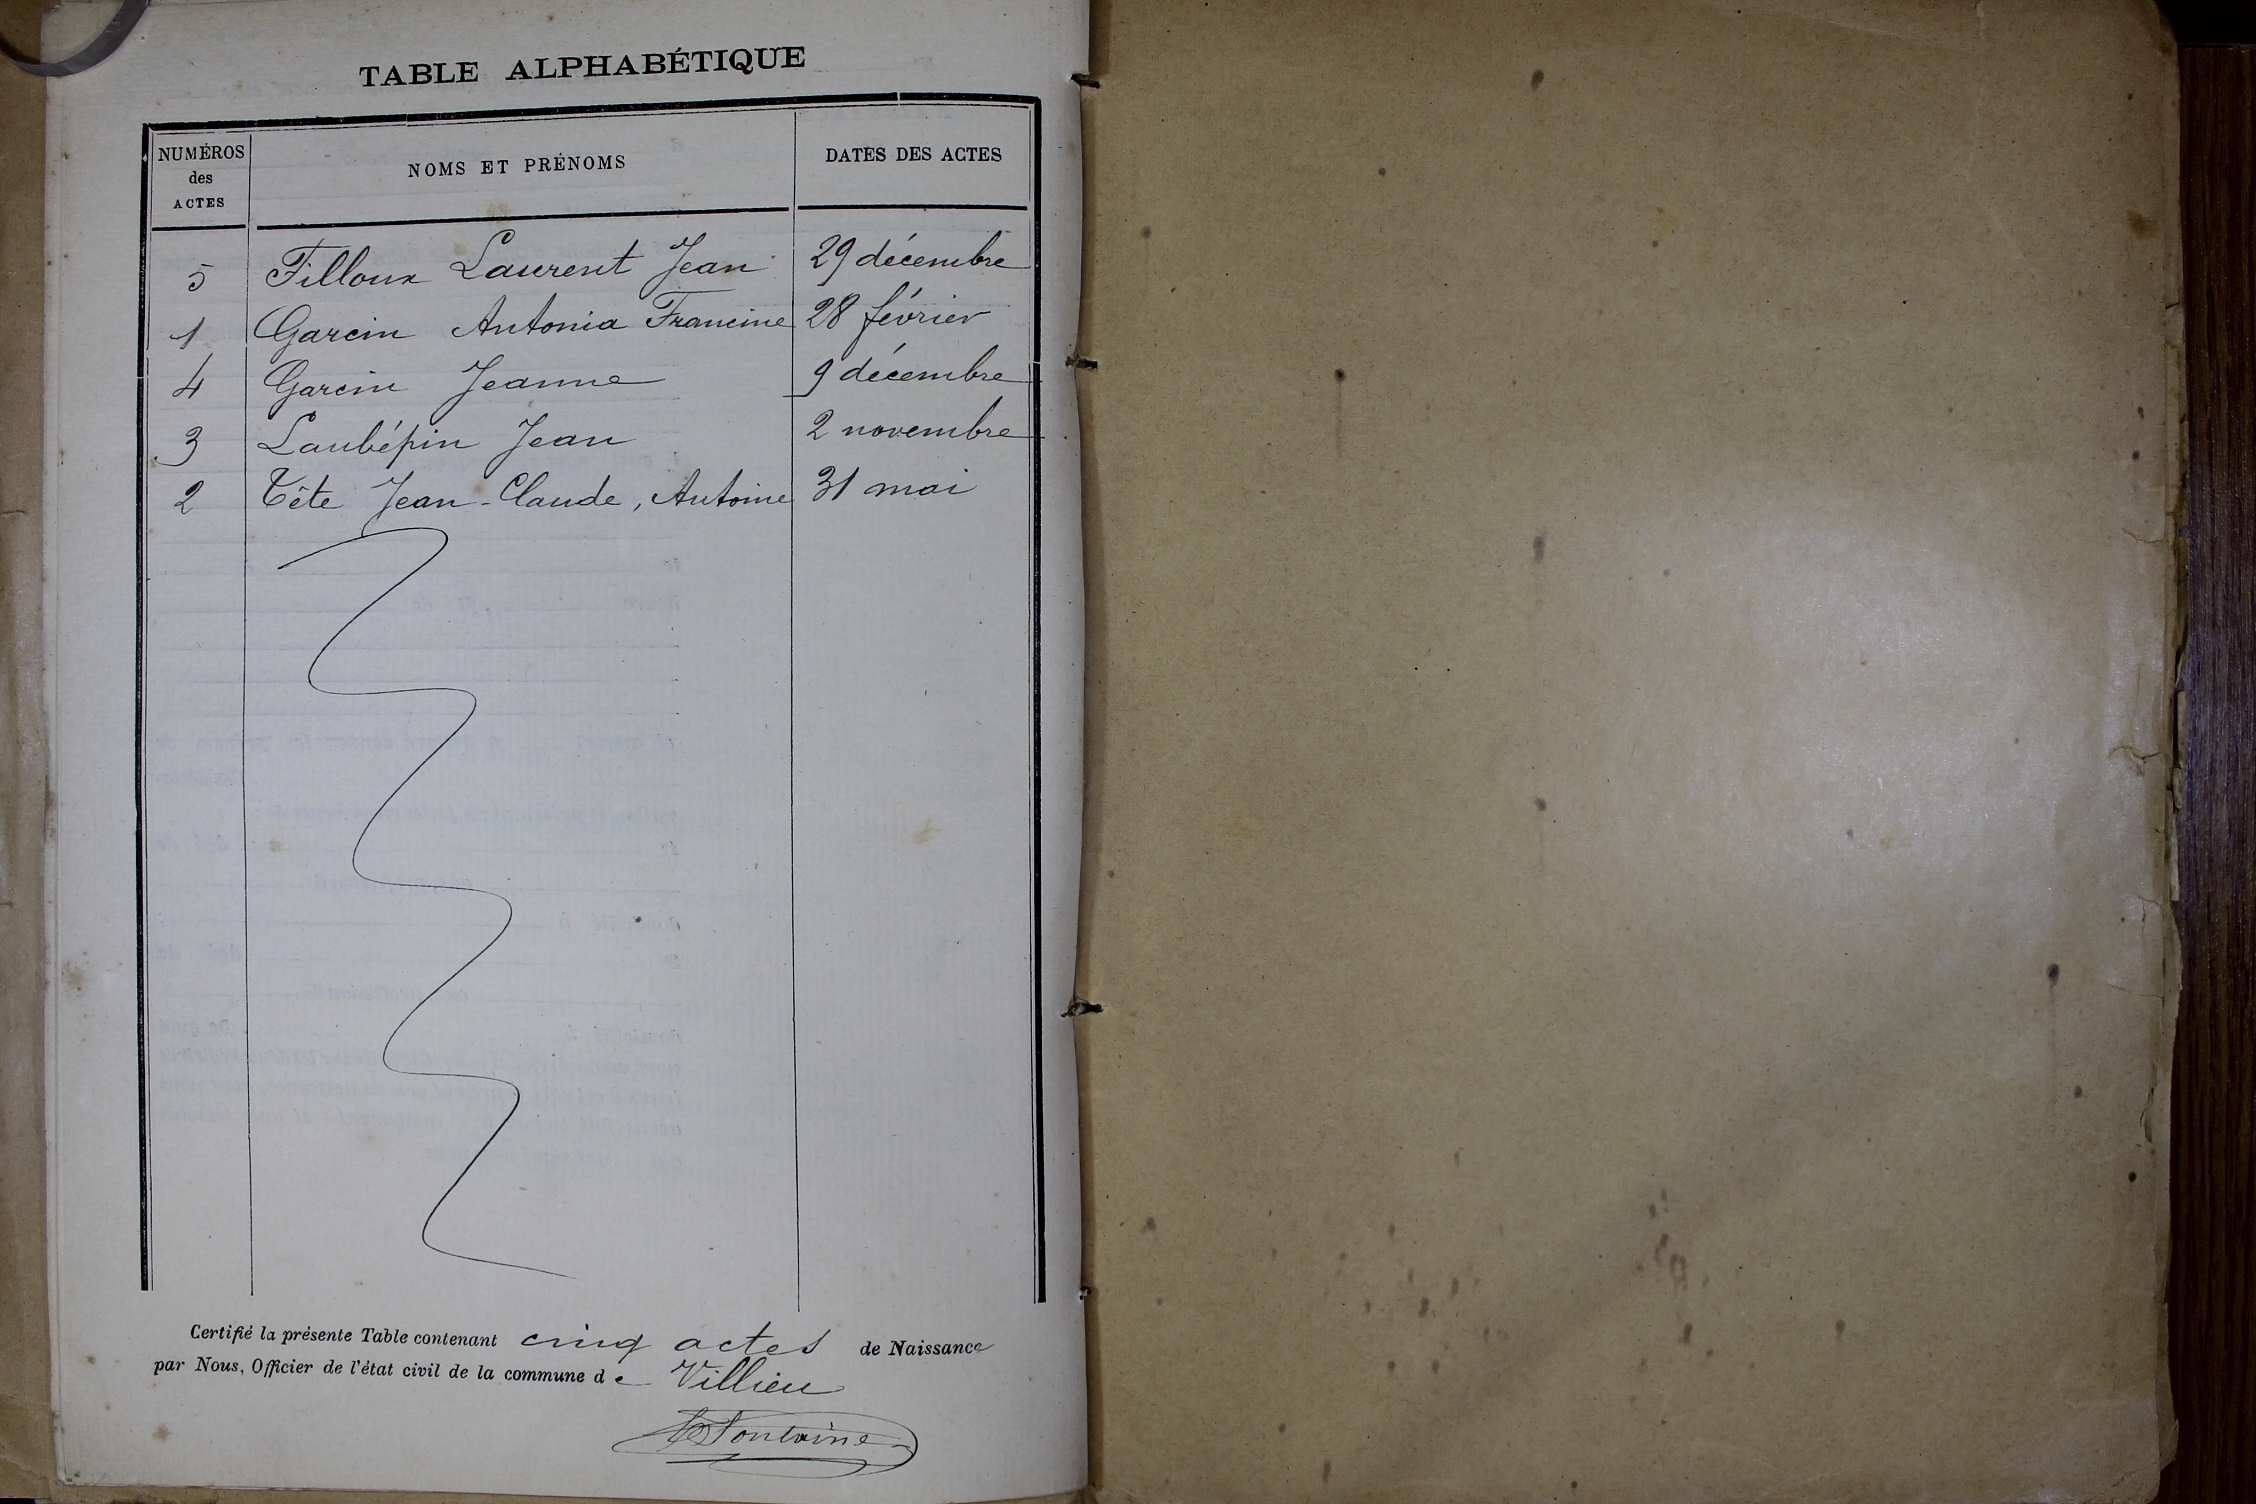 TABLE ALPHABÉTIQUE
NUMÉROS
des
ACTES
NOMS ET PRÉNOMS
DATES DES ACTES
5 Filloux Laurent Jean 29 décembre
1 Garcin Antonia Francine 28 février
4 Garcin Jeanne 9 décembre
3 Laubépin Jean 2 novembre
2 Tête Jean-Claude, Antoine 31 mai
Certifié la présente Table contenant cinq actes de Naissance
par Nous, Officier de l'état civil de la commune de Villieu
Fontaine